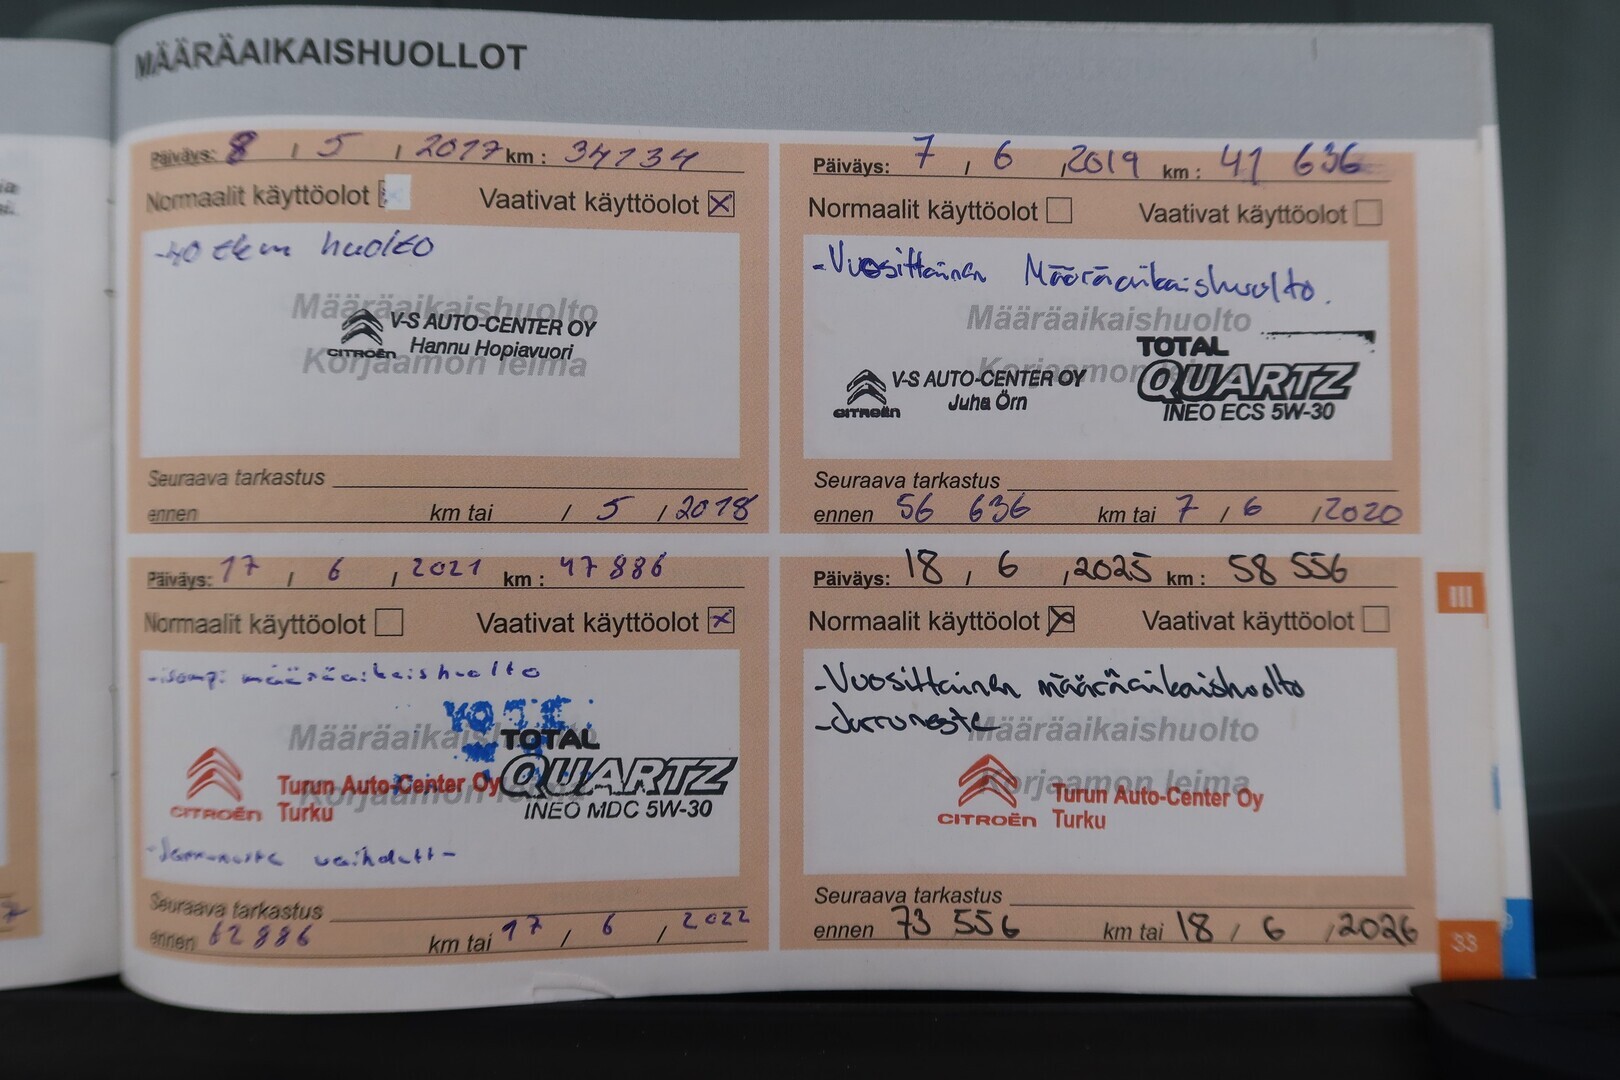 MÄÄRÄAIKAISHUOLLOT
Päiväys: 8 / 5 / 2017 km : 34134
Normaalit käyttöolot Vaativat käyttöolot
-40 tkm huolto
Määräaikaishuolto
V-S AUTO-CENTER OY
CITROËN Hannu Hopiavuori
Korjaamon leima
Seuraava tarkastus
ennen km tai / 5 / 2018
Päiväys: 7 / 6 / 2019 km : 41 636
Normaalit käyttöolot Vaativat käyttöolot
-Vuosittainen Määräaikaishuolto.
Määräaikaishuolto
TOTAL
QUARTZ
INEO ECS 5W-30
V-S AUTO-CENTER OY
CITROËN Juha Örn
Seuraava tarkastus
ennen 56 636 km tai 7 / 6 / 2020
Päiväys: 17 / 6 / 2021 km : 47 886
Normaalit käyttöolot Vaativat käyttöolot
-isompi määräaikaishuolto
Määräaikaishuolto
TOTAL
QUARTZ
INEO MDC 5W-30
Turun Auto-Center Oy
CITROËN Turku
Korjaamon leima
-Jarruneste vaihdettu
Seuraava tarkastus
ennen 62886 km tai 17 / 6 / 2022
Päiväys: 18 / 6 / 2025 km : 58 556
Normaalit käyttöolot Vaativat käyttöolot
-Vuosittainen määräaikaishuolto
-Jarruneste
Määräaikaishuolto
Korjaamon leima
Turun Auto-Center Oy
CITROËN Turku
Seuraava tarkastus
ennen 73 556 km tai 18 / 6 / 2026
III
33